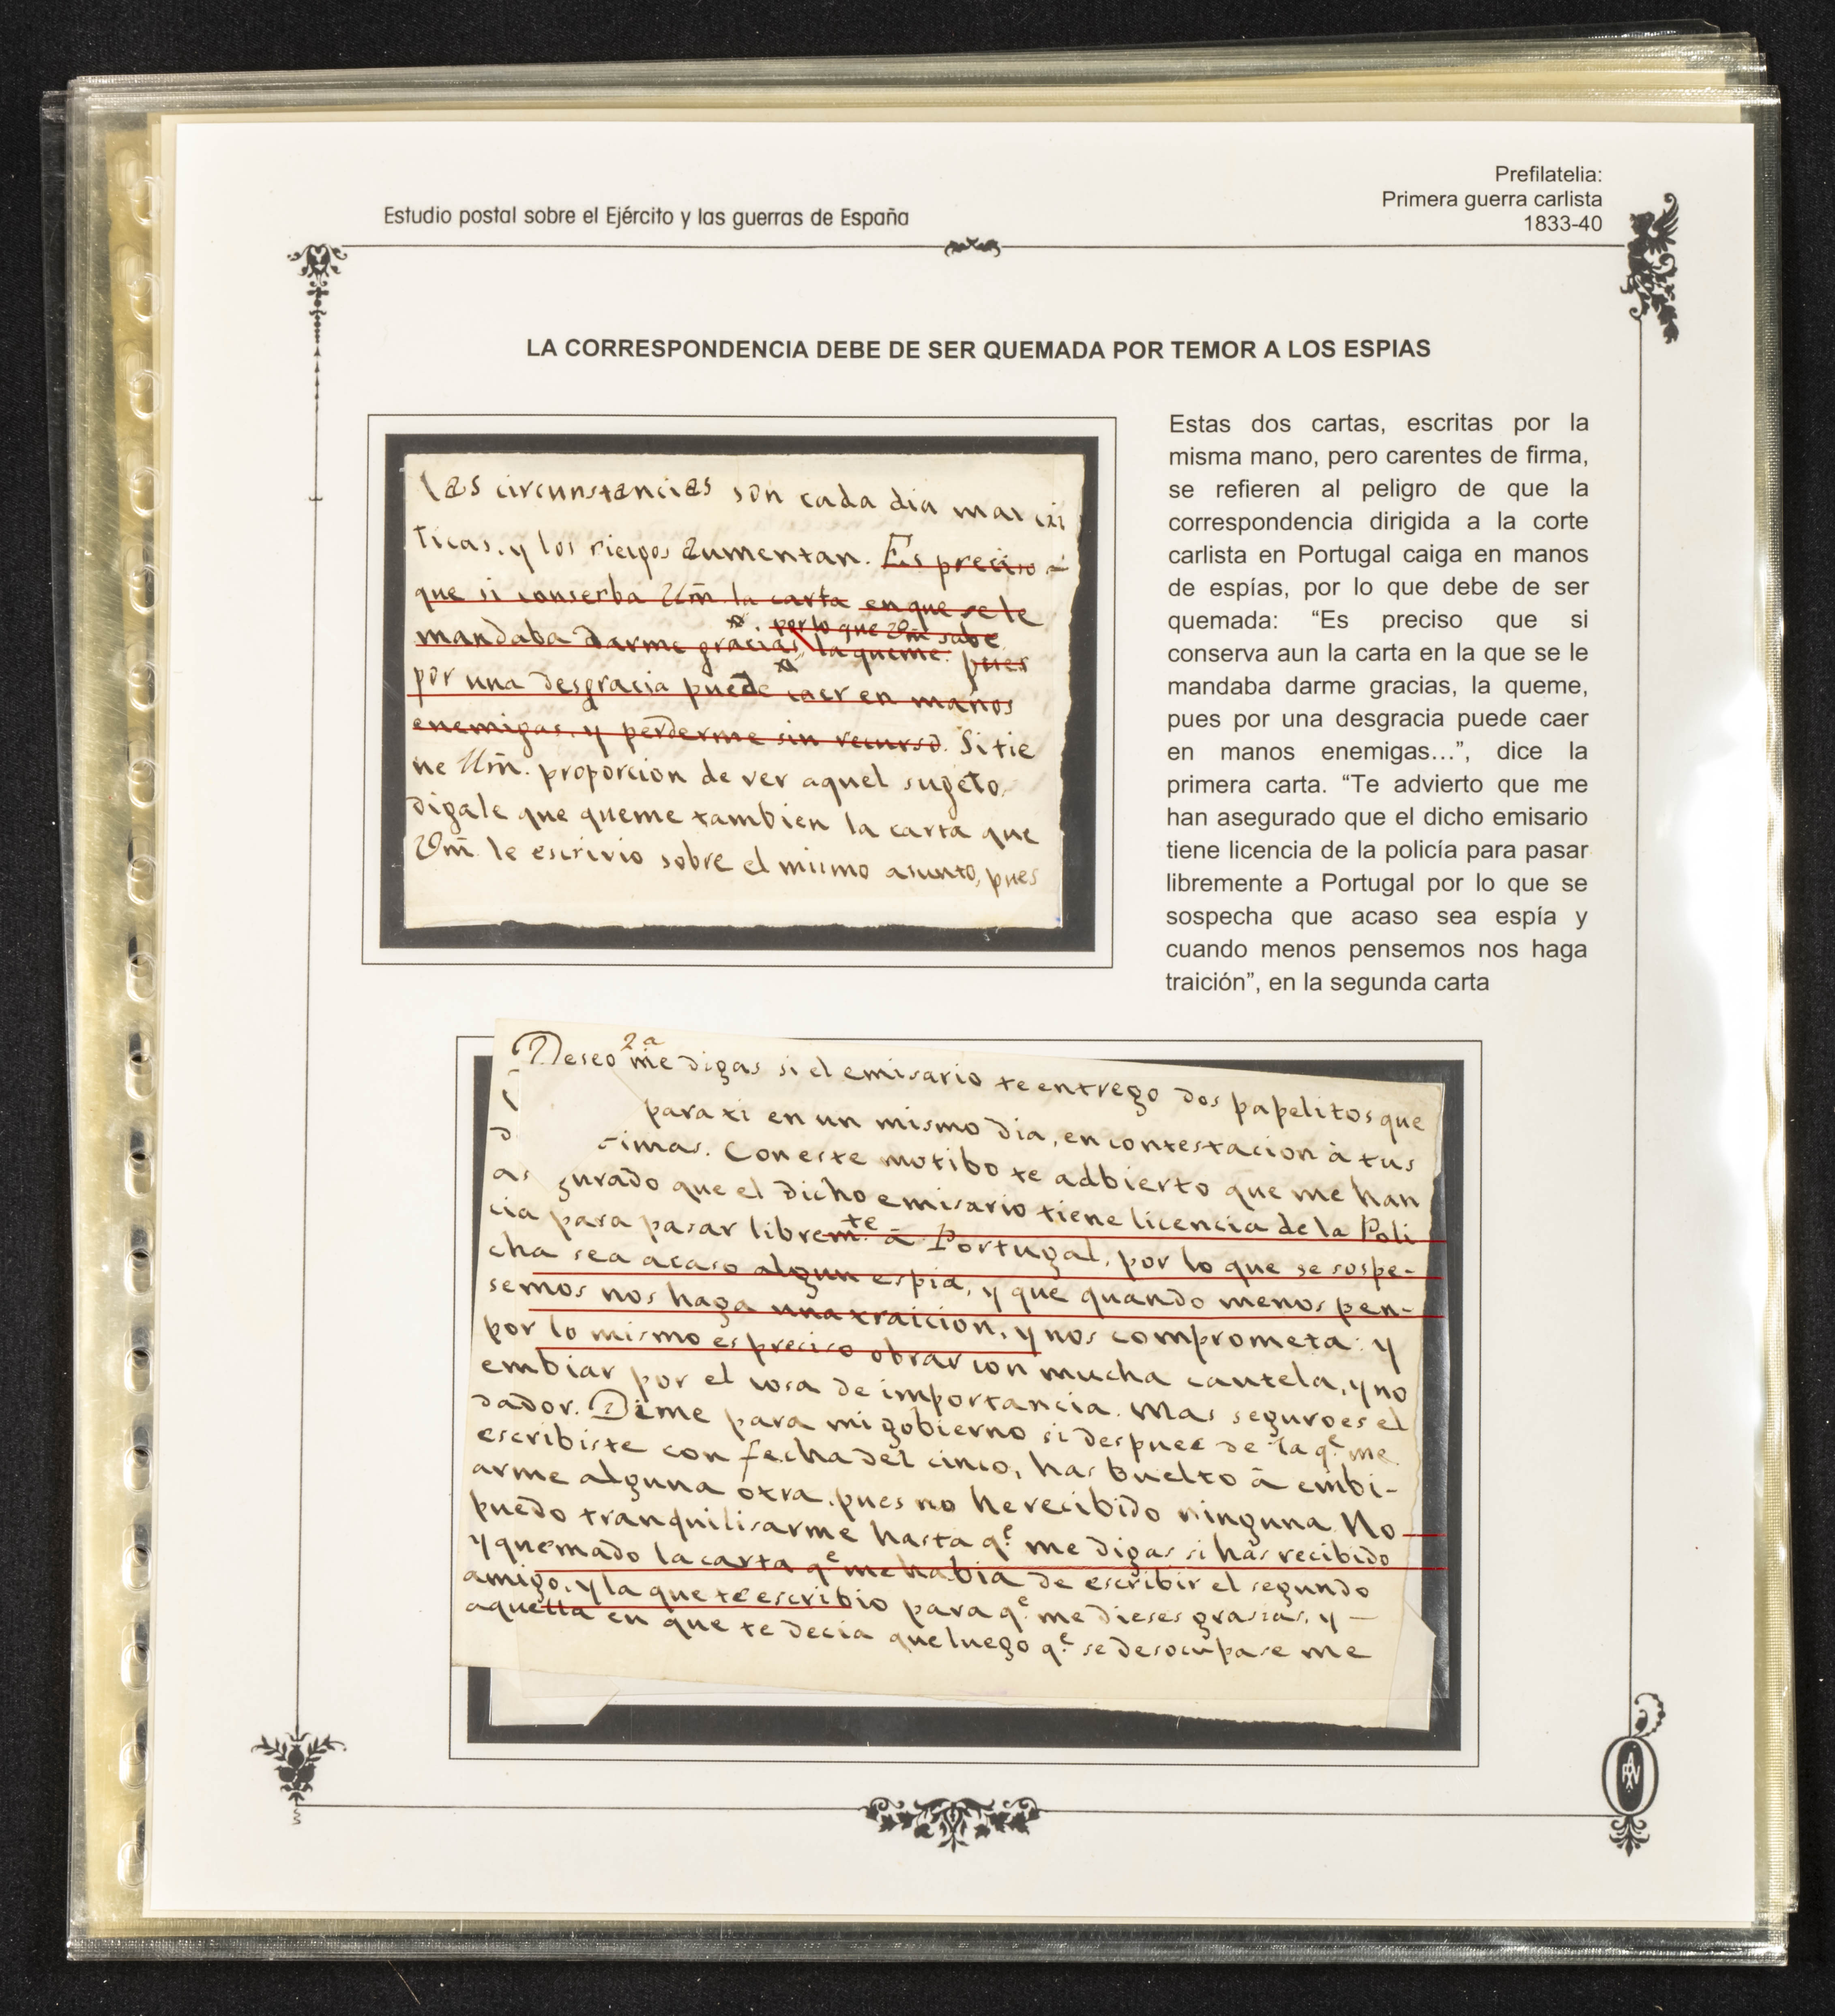 Prefilatelia:
Primera guerra carlista
1833-40
Estudio postal sobre el Ejército y las guerras de España
LA CORRESPONDENCIA DEBE DE SER QUEMADA POR TEMOR A LOS ESPIAS
Estas dos cartas, escritas por la
misma mano, pero carentes de firma,
se refieren al peligro de que la
correspondencia dirigida a la corte
carlista en Portugal caiga en manos
de espías, por lo que debe de ser
quemada: “Es preciso que si
conserva aun la carta en la que se le
mandaba darme gracias, la queme,
pues por una desgracia puede caer
en manos enemigas…”, dice la
primera carta. “Te advierto que me
han asegurado que el dicho emisario
tiene licencia de la policía para pasar
libremente a Portugal por lo que se
sospecha que acaso sea espía y
cuando menos pensemos nos haga
traición”, en la segunda carta
las circunstancias son cada dia mas cri
ticas, y los riesgos aumentan. Es preciso
que si conserba Vm̃. la carta en que se le
por lo que Vm̃ sabe
mandaba darme gracias, la queme. pues
por una desgracia puede caer en manos
enemigas, y perderme sin recurso. Si tie
ne Vm̃. proporcion de ver aquel sugeto,
digale que queme tambien la carta que
Vm̃. le escrivio sobre el mismo asunto, pues
2a
Deseo me digas si el emisario te entrego dos papelitos que
para ti en un mismo dia, en contestacion à tus
timas. Con este motibo te adbierto que me han
as gurado que el dicho emisario tiene licencia de la Poli
cia para pasar librem.te à Portugal, por lo que se sospe-
cha sea acaso algun espia, y que quando menos pen-
semos nos haga una traicion, y nos comprometa: y
por lo mismo es preciso obrar con mucha cautela, y no
embiar por el cosa de importancia. Mas seguro es el
dador. Dime para mi gobierno si despues de la q.e me
escribiste con fecha del cinco, has buelto à embi-
arme alguna otra, pues no he recibido ninguna. No
puedo tranquilisarme hasta q.e me digas si has recibido
y quemado la carta q.e me habia de escribir el segundo
amigo, y la que te escribio para q.e me dieses grasias, y
aquella en que te decia que luego q.e se desocupase me